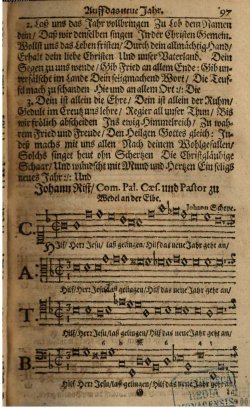 Auff das neue Jahr. 97
2. Laß uns das Jahr vollbringen Zu Lob dem Namen
dein/ Daß wir denselben singen In der Christen Gemein.
Wollst uns das Leben fristen/ Durch dein allmächtig Hand/
Erhalt dein liebe Christen Und unser Vaterland. Dein
Segen zu uns wende/ Gib Fried an allem Ende: Gib un-
verfälscht im Lande Dein seligmachend Wort/ Die Teuf-
fel mach zu schanden Hie und an allem Ort: Die
3. Dein ist allein die Ehre/ Dein ist allein der Ruhm/
Gedult im Creutz uns lehre/ Regier all unser Thun/ Biß
wir frölich abscheiden Ins ewig Himmelreich/ Zu wah-
rem Fried und Freude/ Den Heilgen Gottes gleich: In-
deß machs mit uns allen Nach deinem Wohlgefallen/
Solchs singet heut ohn Schertzen Die Christgläubige
Schaar/ Und wündscht mit Mund und Hertzen Ein selig
neues Jahr: Und
Johann Rist/ Com. Pal. Cæs. und Pastor zu
Wedel an der Elbe.
Johann Schope.
C.
Hilf/ Herr Jesu/ laß gelingen/ Hilf das neue Jahr geht an/
A
Hilf/ Herr Jesu/ laß gelingen/ Hilf das neue Jahr geht an/
T
Hilf/ Herr Jesu/ laß gelingen/ Hilf das neue Jahr geht an/
B.
Hilf/ Herr Jesu/ laß gelingen/ Hilf das neue Jahr geht an/